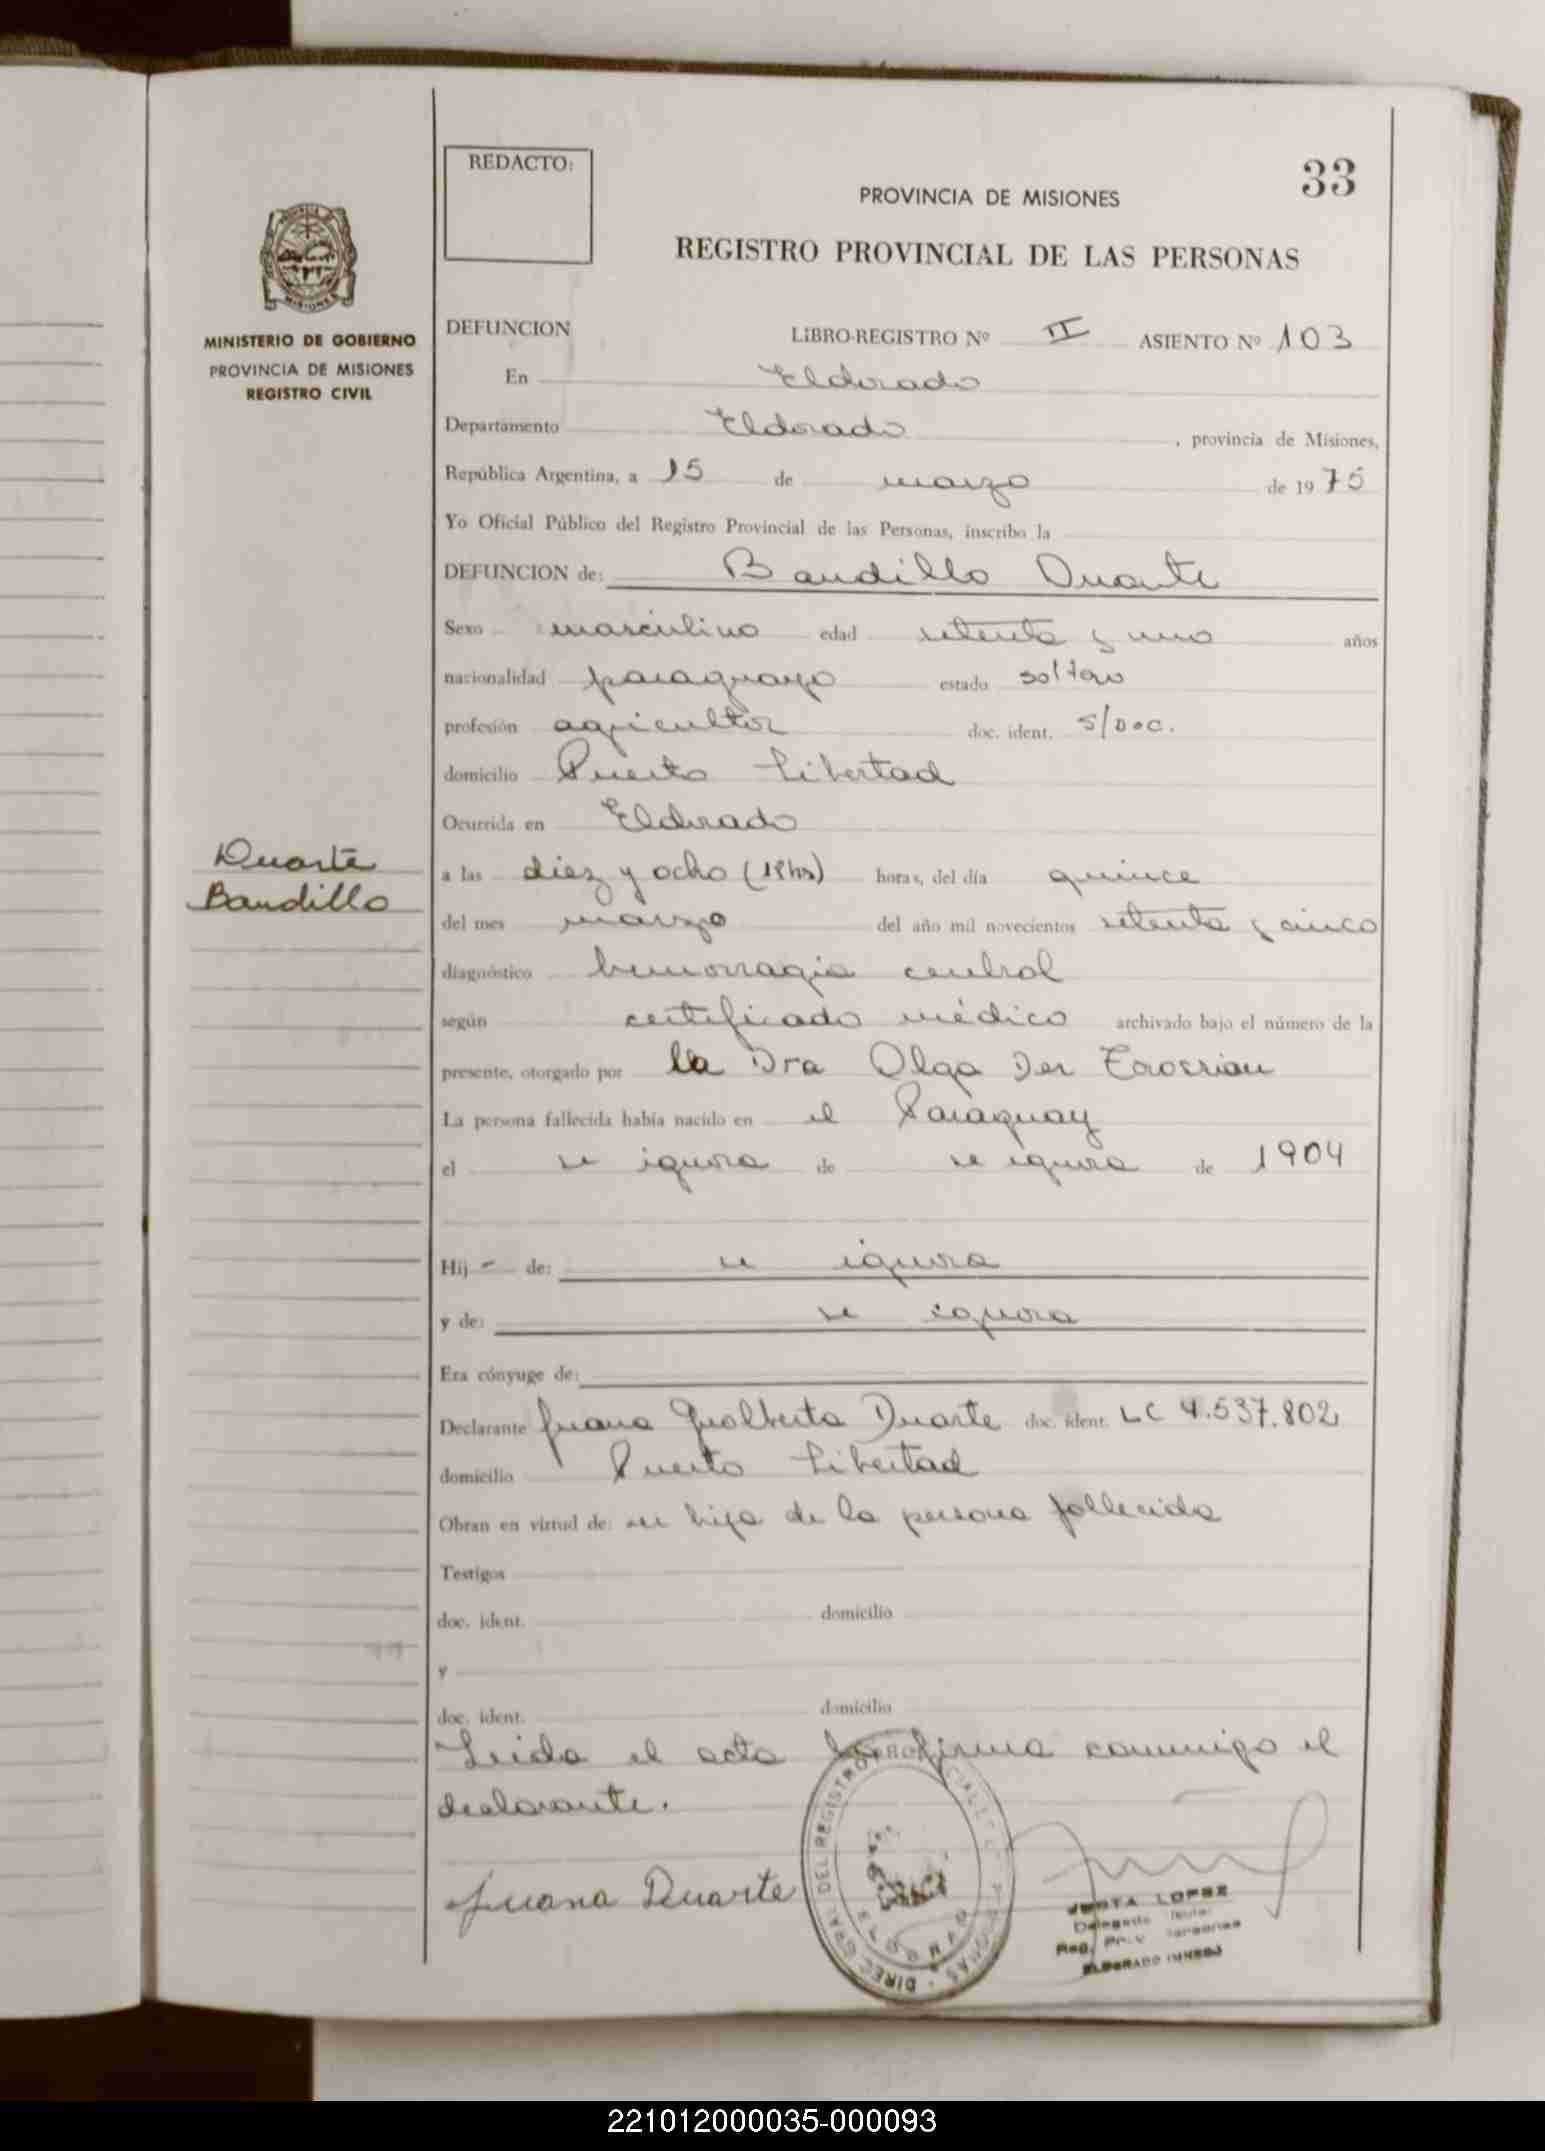 REDACTO:
33
PROVINCIA DE MISIONES
REGISTRO PROVINCIAL DE LAS PERSONAS
MINISTERIO DE GOBIERNO
PROVINCIA DE MISIONES
REGISTRO CIVIL
DEFUNCION LIBRO-REGISTRO Nº II ASIENTO Nº 103
En Eldorado
Departamento Eldorado, provincia de Misiones,
República Argentina, a 15 de marzo de 1975
Yo Oficial Público del Registro Provincial de las Personas, inscribo la
DEFUNCION de: Baudillo Duarte
Sexo masculino edad setenta y uno años
nacionalidad paraguayo estado soltero
profesión agricultor doc. ident. S/Doc.
domicilio Puerto Libertad
Ocurrida en Eldorado
Duarte
Baudillo
a las diez y ocho (18hs) horas, del día quince
del mes marzo del año mil novecientos setenta y cinco
diagnóstico hemorragia
según certificado médico archivado bajo el número de la
presente, otorgado por la Dra Olga Der
La persona fallecida había nacido en el Paraguay
el se ignora de se ignora de 1904
Hij - de: se ignora
y de: se ignora
Era cónyuge de:
Declarante Juana Gualberta Duarte doc. ident. LC 4.537.802
domicilio Puerto Libertad
Obran en virtud de: ser hija de la persona fallecida
Testigos
doc. ident. domicilio
y
doc. ident. domicilio
Leida el acta la firma conmigo el
declarante.
Juana Duarte
DIREC. GRAL DEL REGISTRO PROVINCIAL DE LAS PERSONAS
ELDORADO
LOPEZ
Delegado Titular
Reg. Prov. Personas
ELDORADO (MNES)
221012000035-000093